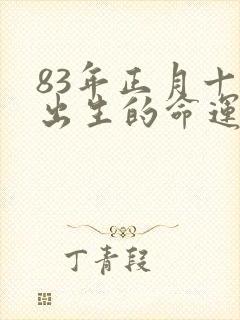 83年正月十
出生的命運
丁青段